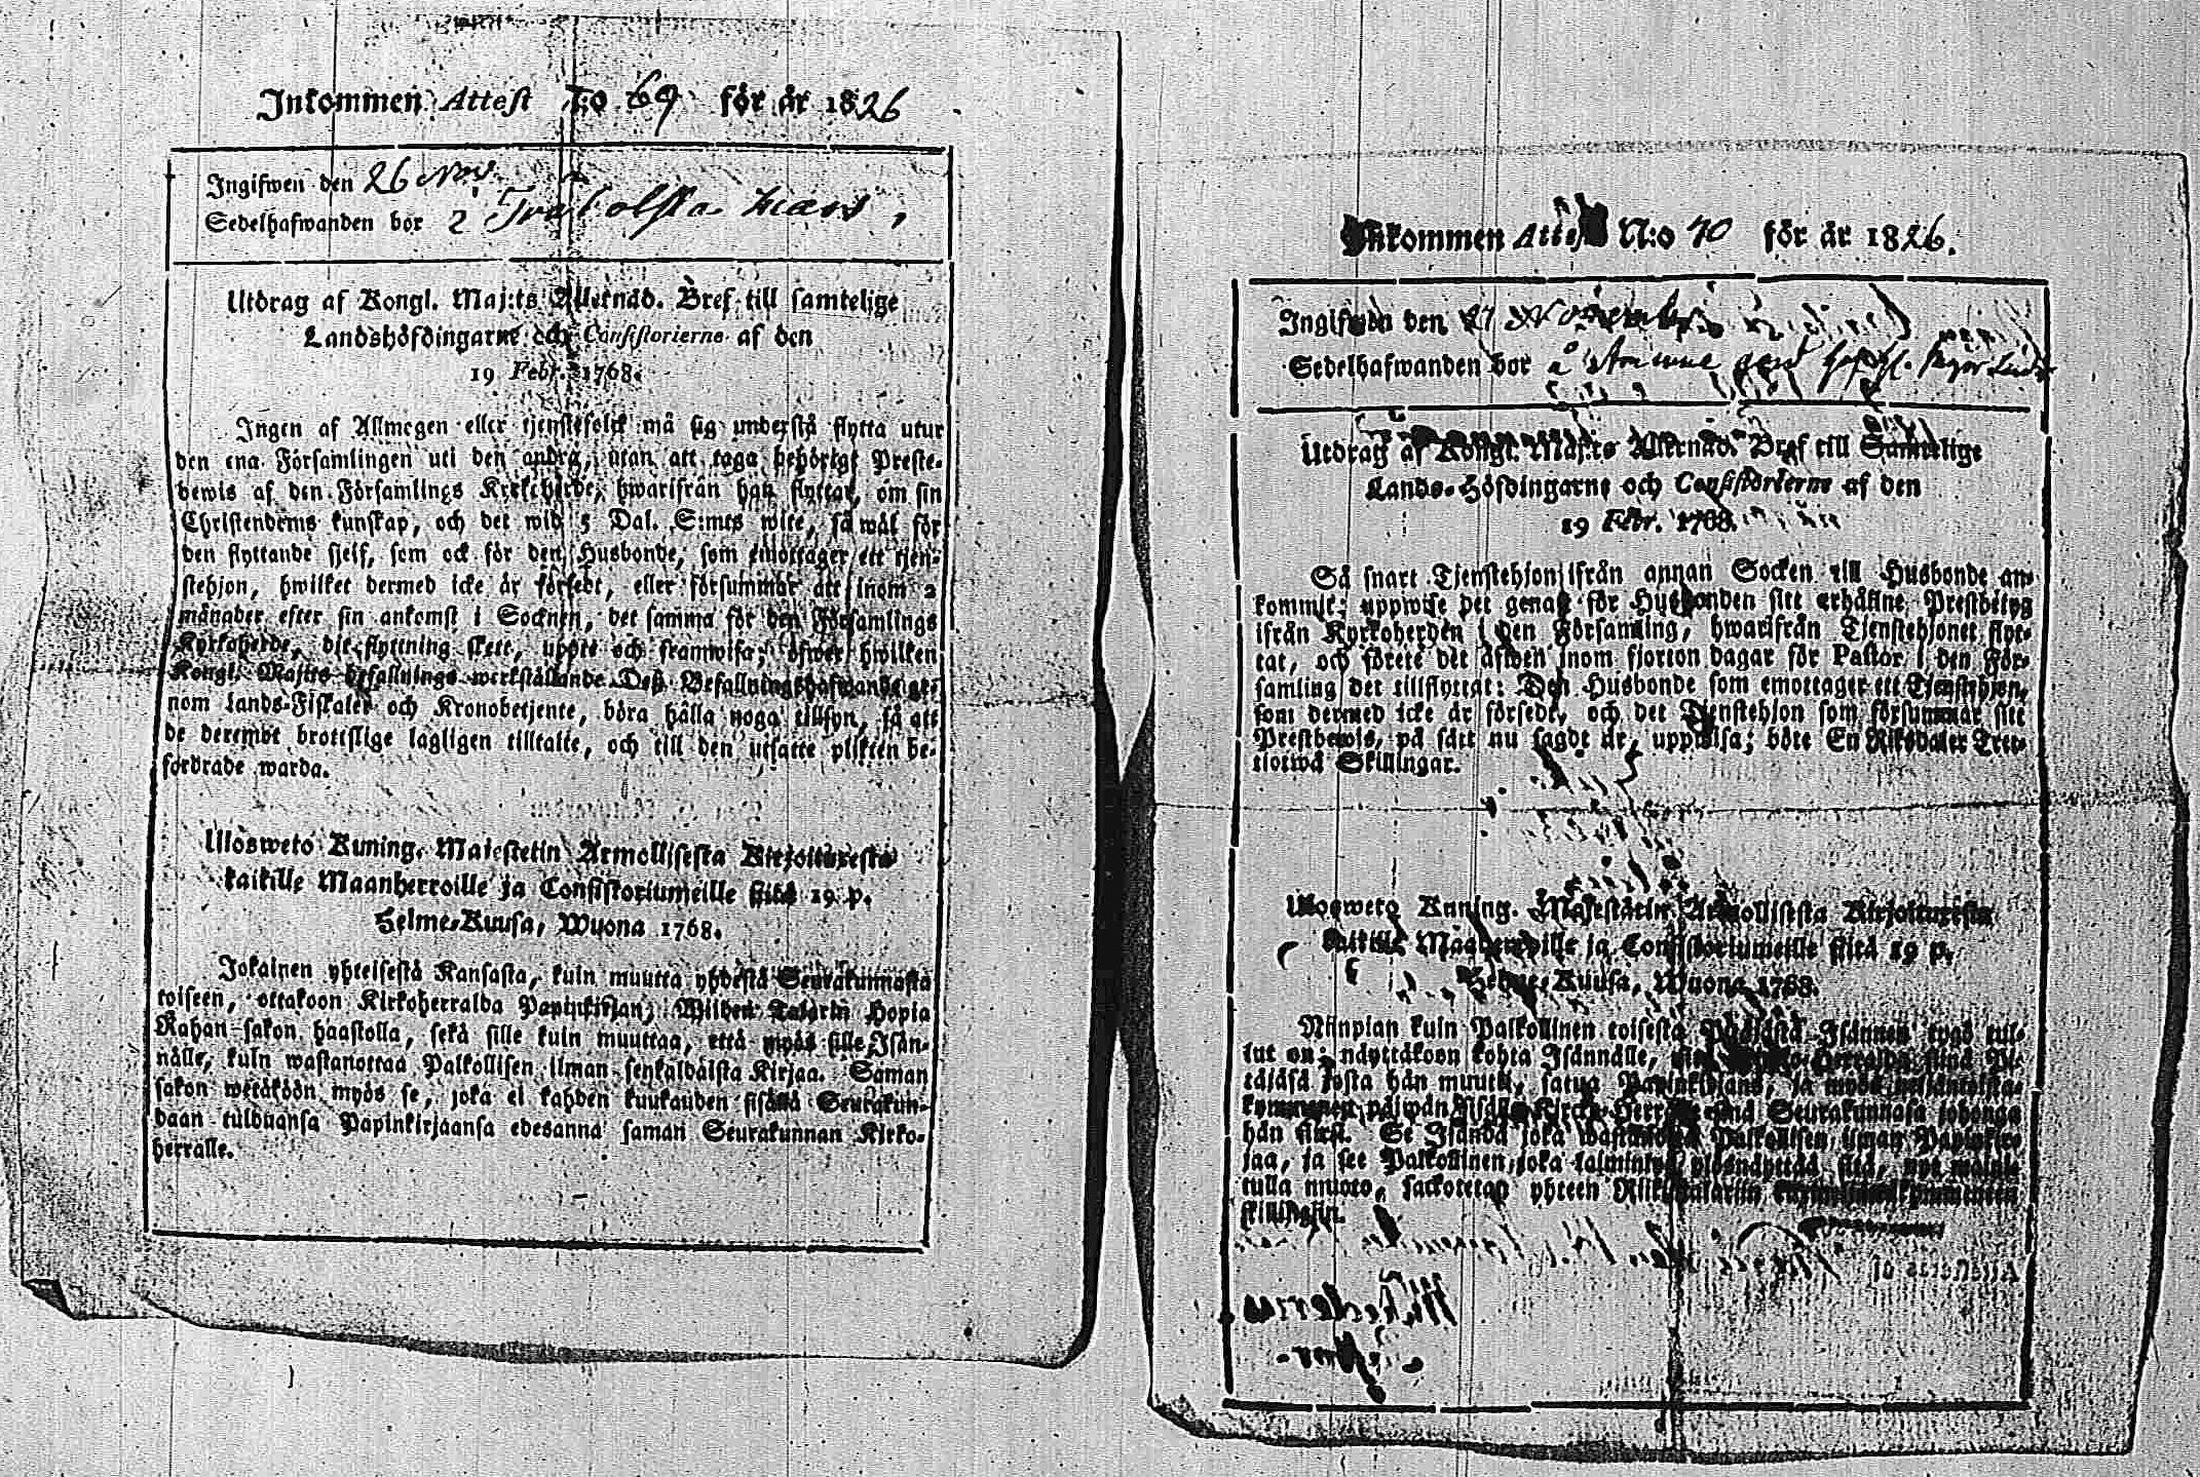 Inkommen Attest N:o 69 för år 1826
Ingifwen den 26 Nov.
Sedelhafwanden bor
Utdrag af Kongl. Maj:ts Allernåd. Bref till samtelige
Landshöfdingarne och Consistorierne af den
19 Febr. 1768.
Ingen af Allmogen eller tjenstefolck må sig understå flytta utur
den ena Församlingen uti den andra, utan att taga behörigt Preste-
bewis af den Församlings Kyrkoherde, hwarifrån han flyttar, om sin
Christendoms kunskap, och det wid 5 Dal. S:mts wite, så wäl för
den flyttande sjelf, som ock för den Husbonde, som emottager ett tjen-
stehjon, hwilket dermed icke är försedt, eller försummar att inom 2
månader efter sin ankomst i Socknen, det samma för den Församlings
Kyrkoherde, dit flyttning skett, uppte och framwisa; öfwer hwilken
Kongl. Maj:ts befallnings werkställande Deß Befallningshafwande ge-
nom Lands-Fiskaler och Kronobetjente, böra hålla noga tillsyn, så att
de deremot brottslige lagligen tilltalte, och till den utsatte plikten be-
fordrade warda.
Ulosweto Kuning. Majestetin Armollisesta Kirjoituxesta
kaikille Maanherroille ja Consistoriumeille siitä 19 p.
Helme-Kuusa, Wuona 1768.
Jokainen yhteisestä Kansasta, kuin muutta yhdestä Seurakunnasta
toiseen, ottakoon Kirkoherralda Papinkirjan, Wiiden Talarin Hopia
Rahan sakon haastolla, sekä sille kuin muuttaa, että myös sille Isän-
nälle, kuin wastanottaa Palkollisen ilman senkaldaista Kirjaa. Saman
sakon wetäköön myös se, joka ei kahden kuukauden sisällä Seurakun-
daan tulduansa Papinkirjaansa edesanna saman Seurakunnan Kirko-
herralle.
Inkommen Attest N:o 70 för år 1826.
Ingifwen den 27 November
Sedelhafwanden bor å
Utdrag af Kongl. Maj:ts Allernåd. Bref till Samtelige
Lands-Höfdingarne och Consistorierne af den
19 Febr. 1768.
Så snart Tjenstehjon ifrån annan Socken till Husbonde an-
kommit; uppwise det genast för Husbonden sitt erhåfine Prestbetyg
ifrån Kyrkoherden i den Församling, hwarifrån Tjenstehjonet flyt-
tat, och förete det äfwen inom fjorton dagar för Pastor i den För-
samling det tillflyttat: Den Husbonde som emottager ett Tjenstehjon,
som dermed icke är försedt, och det Tjenstehjon som försummar sitt
Prestbewis, på sätt nu sagdt är, uppwisa; böte En Riksdaler Tret-
tiotwå Skillingar.
Ulosweto Kuning. Majestätin Armollisesta Kirjoituxesta
kaikille Maanherroille ja Consistoriumeille siitä 19 p.
Helme-Kuusa, Wuona 1768.
Niinpian kuin Palkollinen toisesta Pitäjästä Isännen tygö tul-
lut on, näyttäköön kohta Isännälle, Kirko-Herralda siinä Pi-
täjäsä josta hän muutti, saatua Papinkirjans, ja myös neljäntoista-
kymmenen päiwän sisällä Kircko-Herralle sinä Seurakunnasa johonga
hän siirsi. Se Isändä joka wastanottaa Palkollisen ilman Papinkir-
jaa, ja see Palkollinen, joka laiminlyö ylösnäyttää sitä, nyt mainit-
tulla muoto, sackotetan yhteen Riikintalariin
skillingiin.